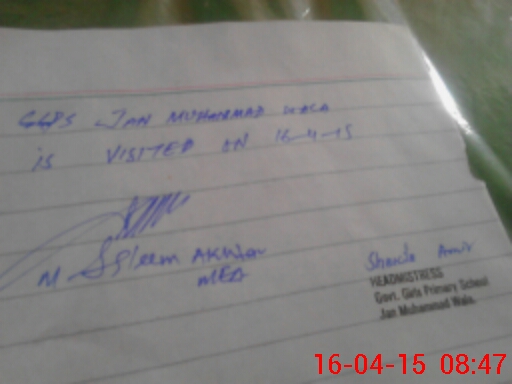 GGPS JAN MUHAMMAD WALA
is VISITED ON 16-4-15
M Saleem AKhtar
MEA
Amir
HEADMISTRESS
Govt. Girls Primary School
Jan Muhammad Wala.
16-04-15 08:47